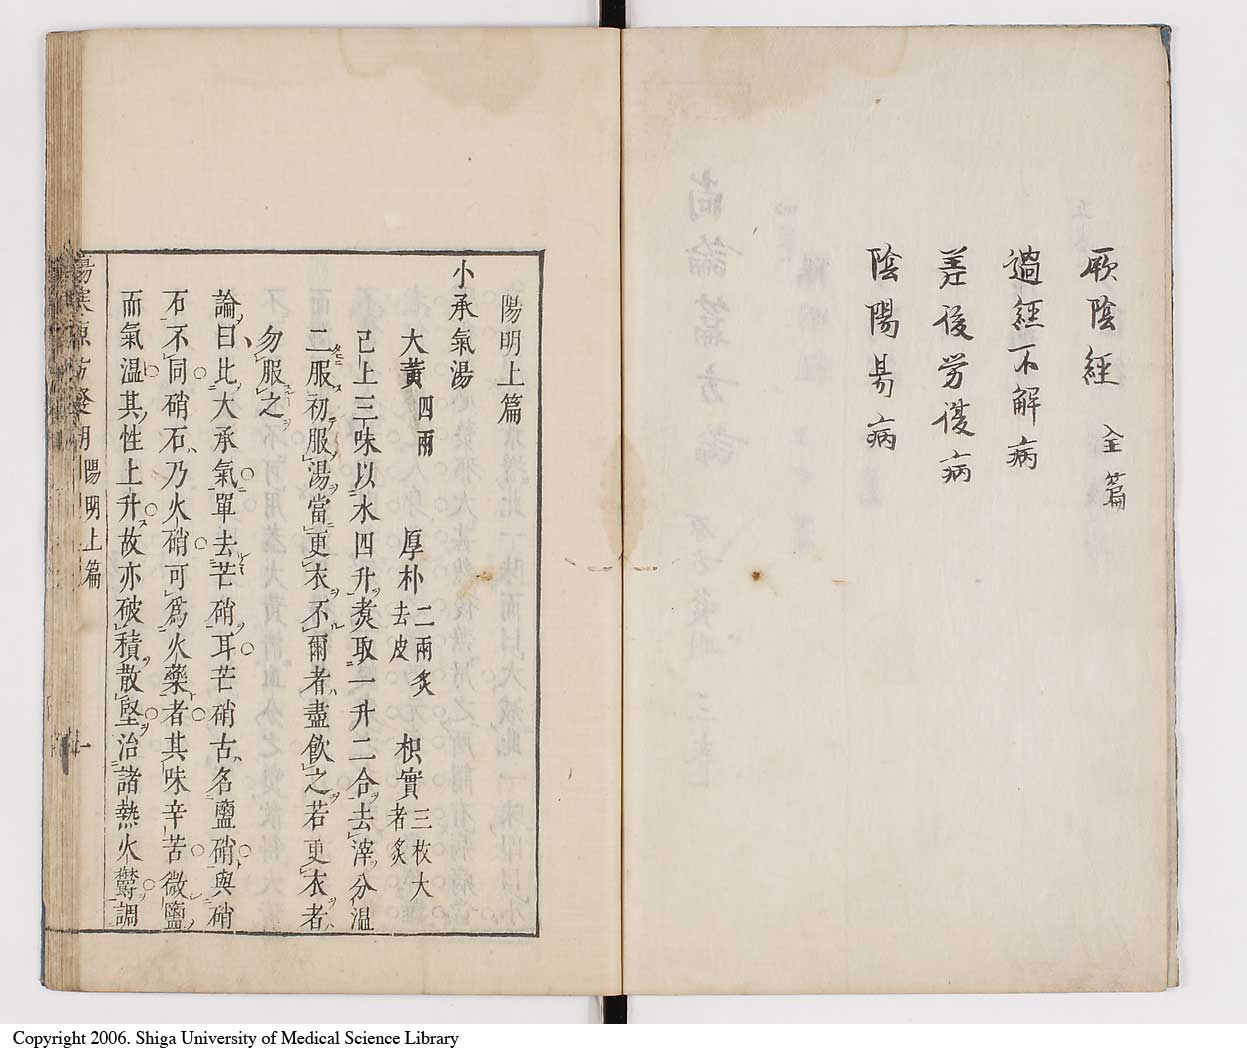 厥陰經 全篇
過經不解病
差後労復病
陰陽易病
陽明上篇
小承氣湯
大黃 四兩 厚朴 二兩炙去皮 枳實 三枚大者炙
已上三味以水四升煑取一升二合去滓分溫
二服初服湯當更衣不爾者盡飮之若更衣者
勿服之
論曰比大承氣單去芒硝耳芒硝古名鹽硝與硝
石不同硝石乃火硝可爲火藥者其味辛苦微鹽
而氣溫其性上升故亦破積散堅治諸熱火欝調
陽明上篇
一
Copyright 2006. Shiga University of Medical Science Library